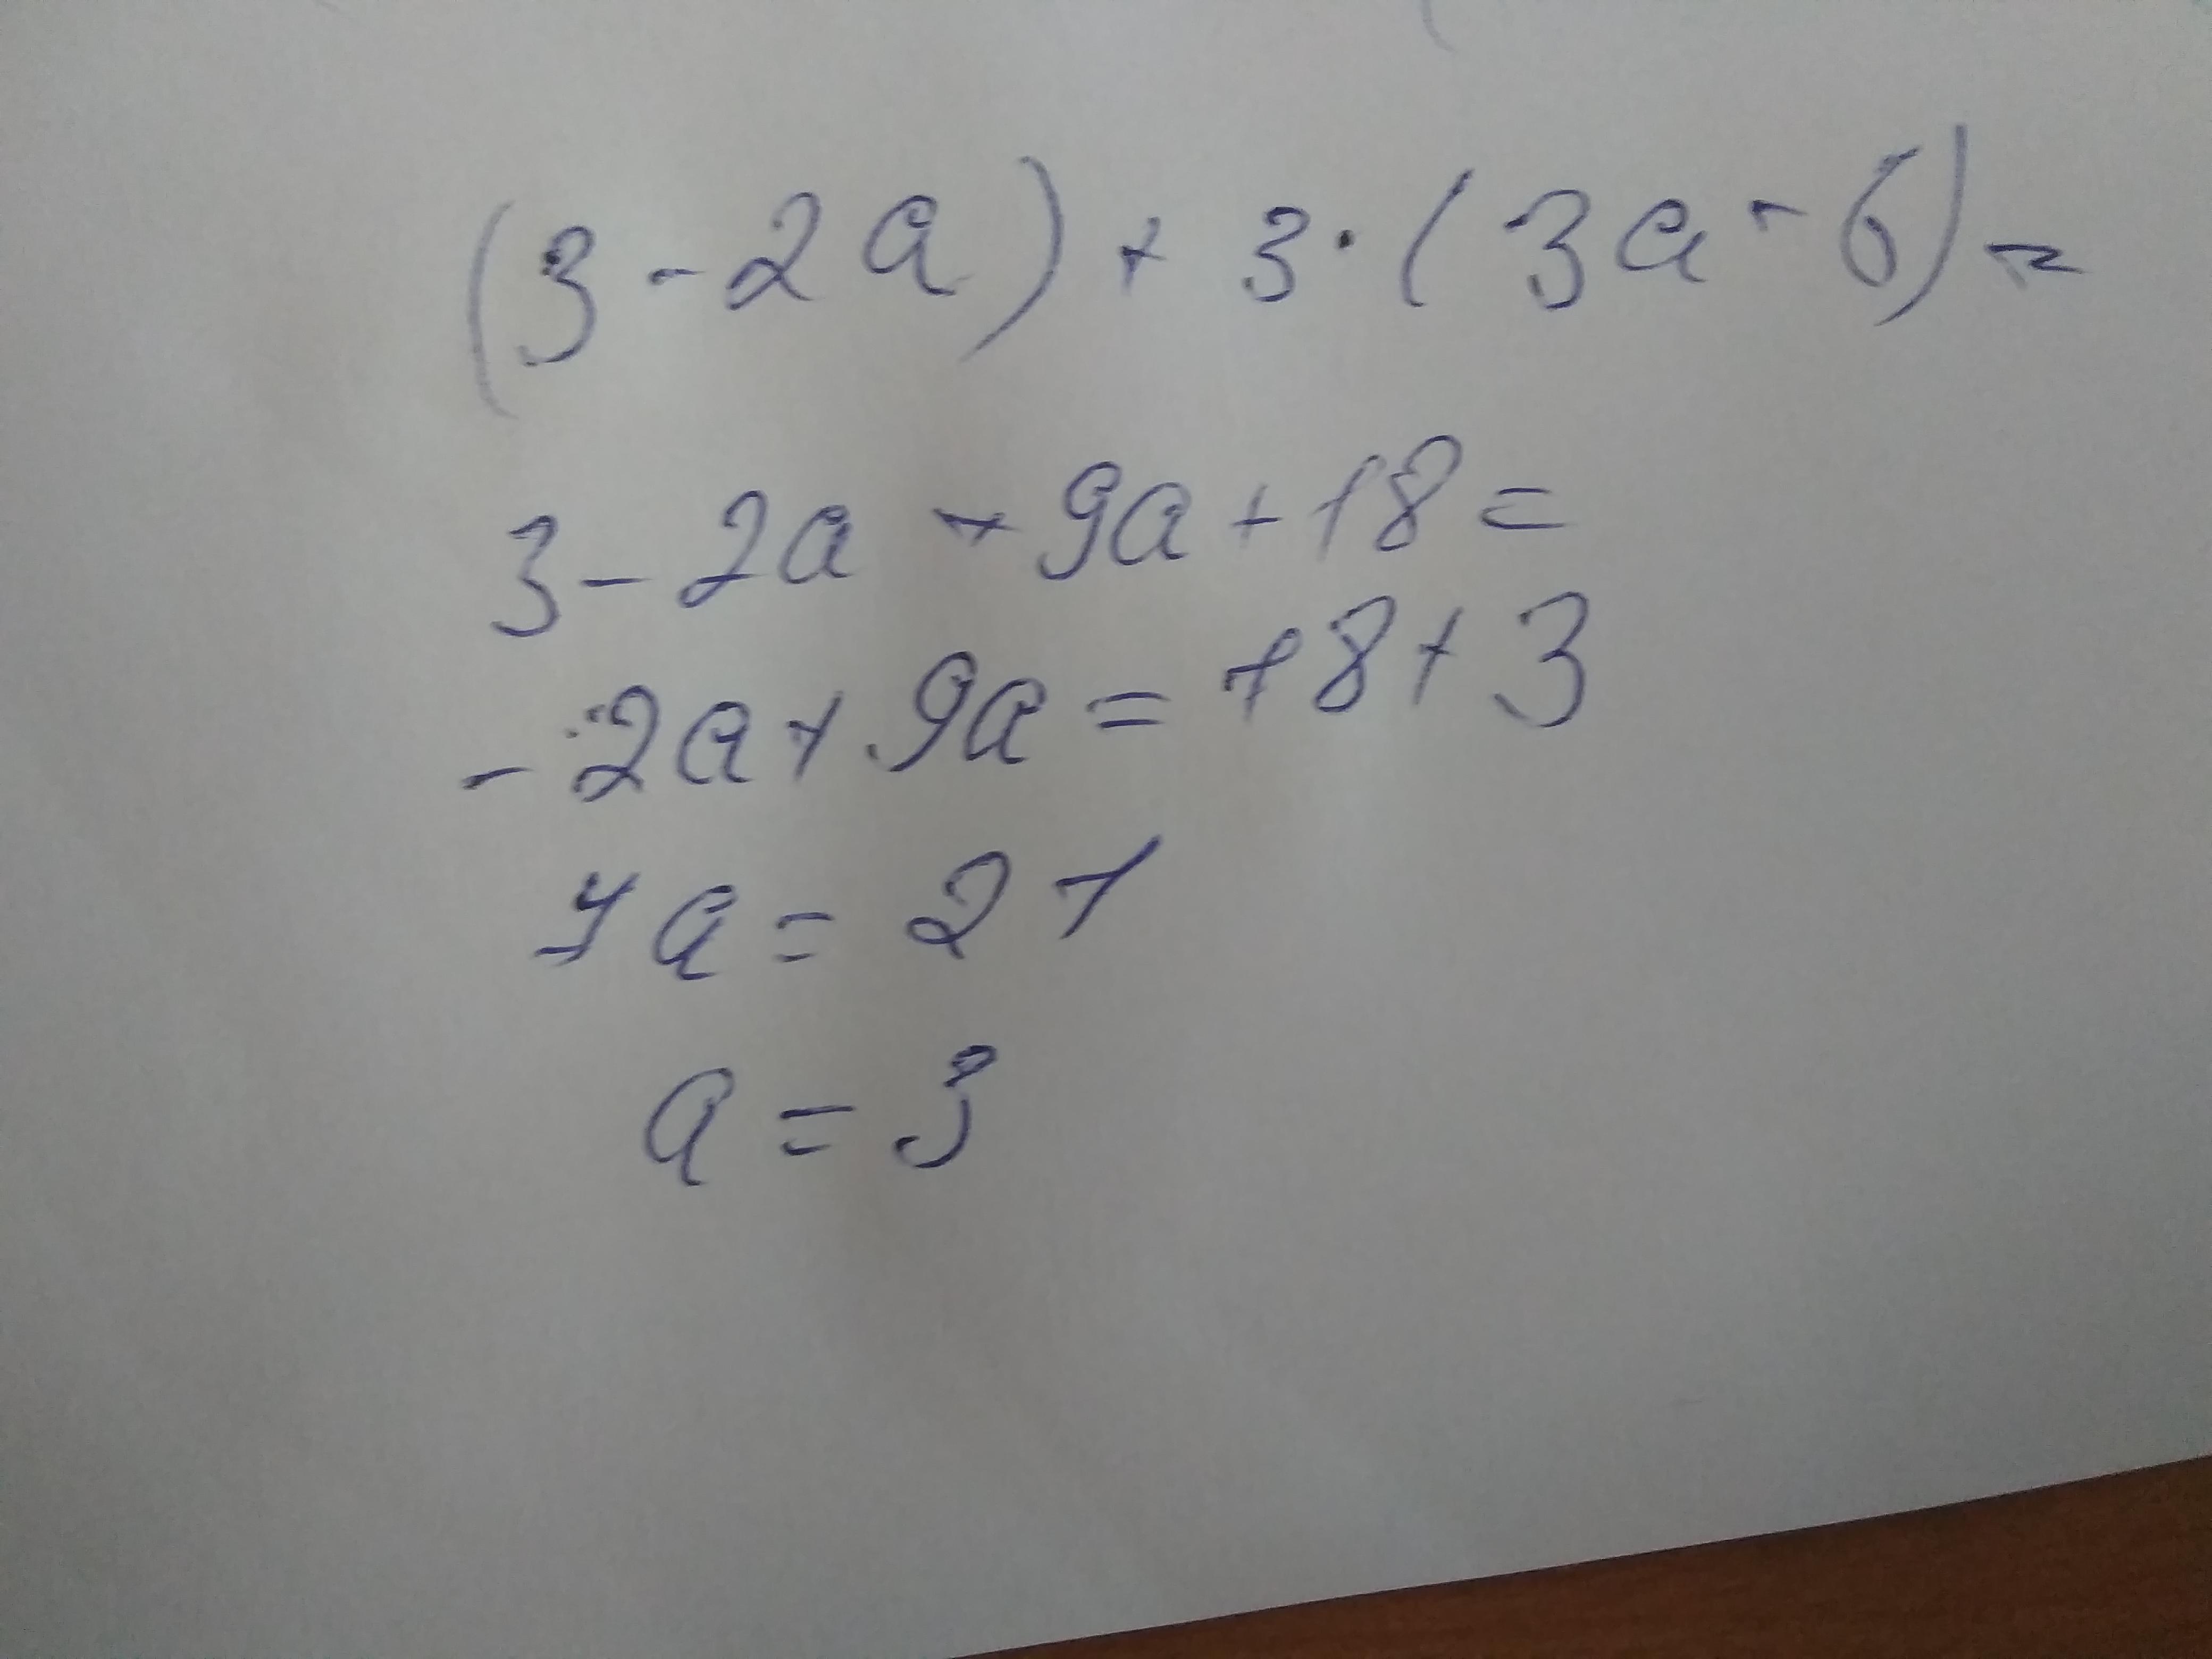 (3 - 2a) + 3 · (3a - 6) =
3 - 2a - 9a + 18 =
- 2a + 9a = 18 + 3
7a = 21
a = 3